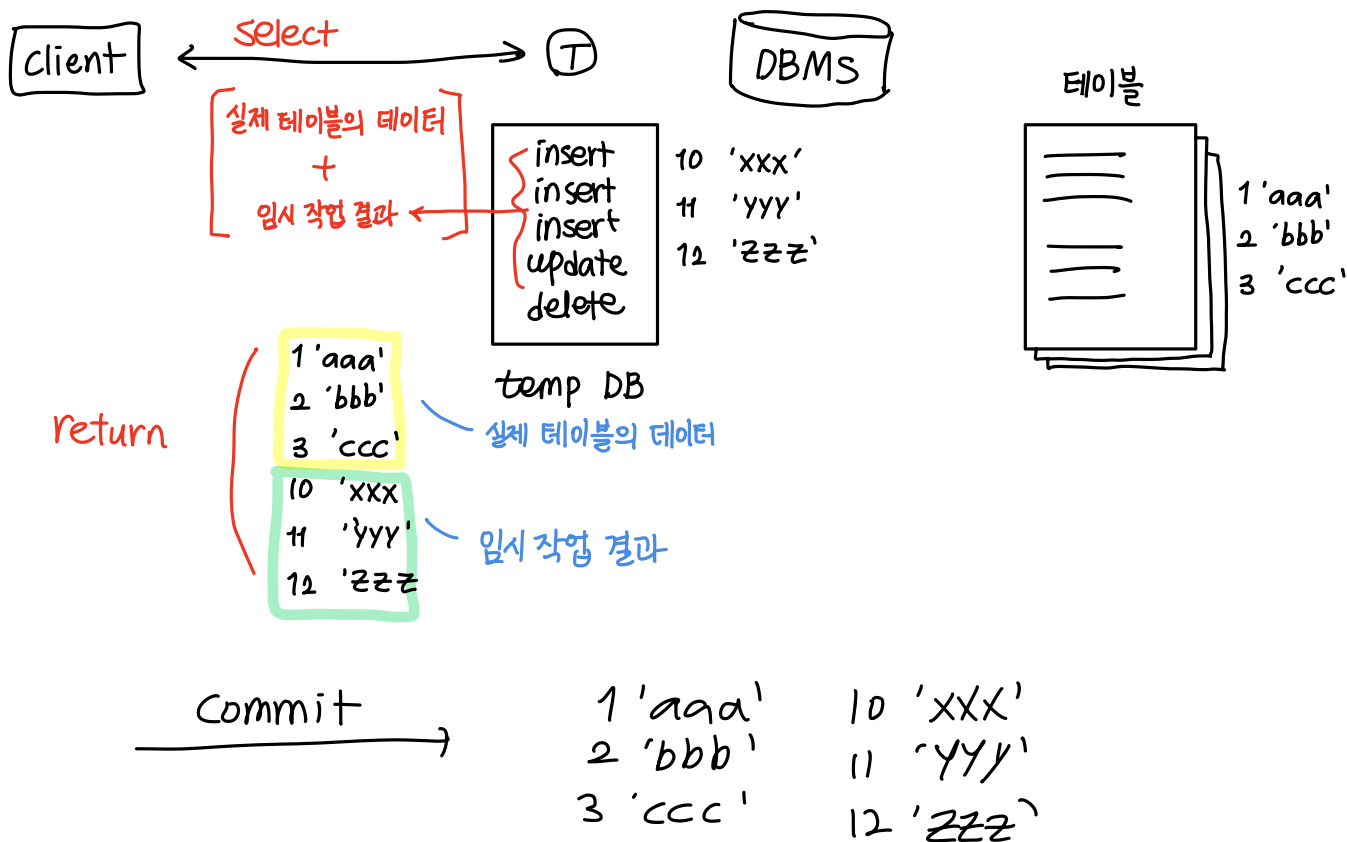 client
select
T
DBMS
테이블
실제 테이블의 데이터
+
임시 작업 결과
insert
insert
insert
update
delete
10 'xxx'
11 'YYY'
12 'ZZZ'
1 'aaa'
2 'bbb'
3 'ccc'
temp DB
return
1 'aaa'
2 'bbb'
3 'ccc'
10 'xxx
11 'YYY'
12 'ZZZ
실제 테이블의 데이터
임시 작업 결과
commit
1 'aaa' 10 'XXX'
2 'bbb' 11 'YYY'
3 'ccc' 12 'ZZZ'